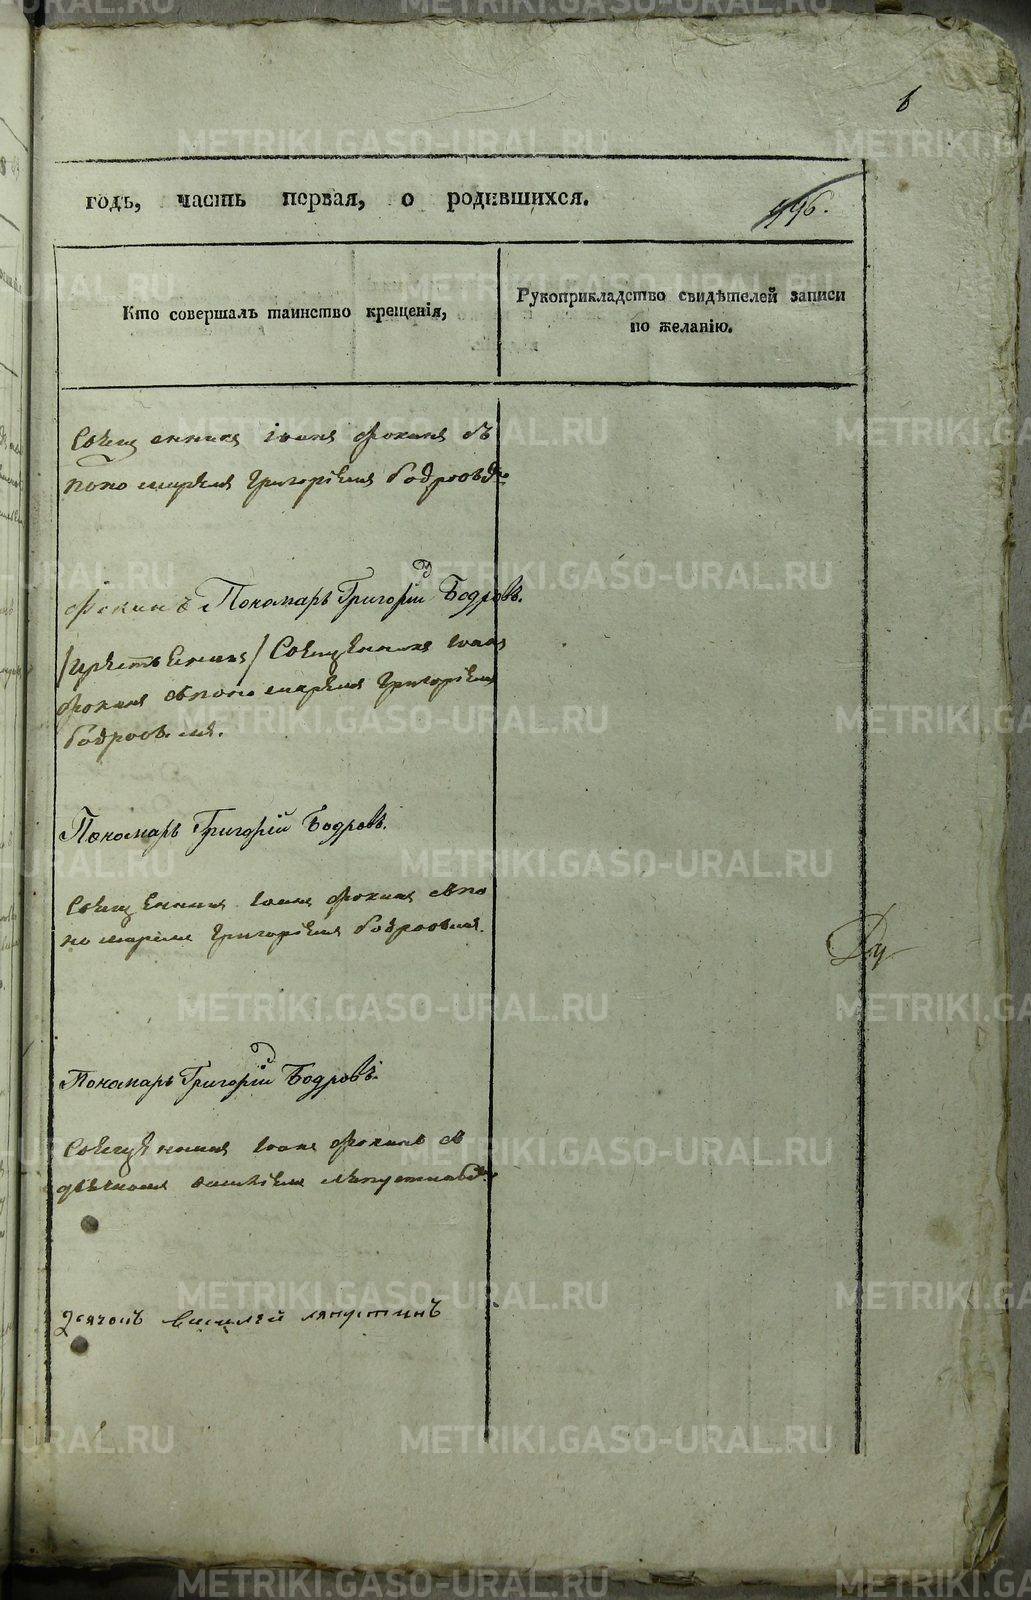 6
годъ, часть первая, о родившихся.
996.
Кто совершалъ таинство крещенія,
Рукоприкладство свидѣтелей записи
по желанію.
Священникъ Іоаннъ Фокинъ съ
пономаремъ Григоріемъ Бодровым
Фокинъ Пономарь Григорій Бодровъ.
Священникъ Іоаннъ
Фокинъ съ пономаремъ Григоріемъ
Бодровымъ.
Пономарь Григорій Бодровъ.
Священникъ Іоаннъ Фокинъ съ по
номаремъ Григоріемъ Бодровымъ.
Пономарь Григорій Бодровъ.
Священникъ Іоаннъ Фокинъ съ
дьячкомъ Василіемъ Ляпустинымъ
дьячокъ Василей Ляпустинъ
METRIKI.GASO-URAL.RU